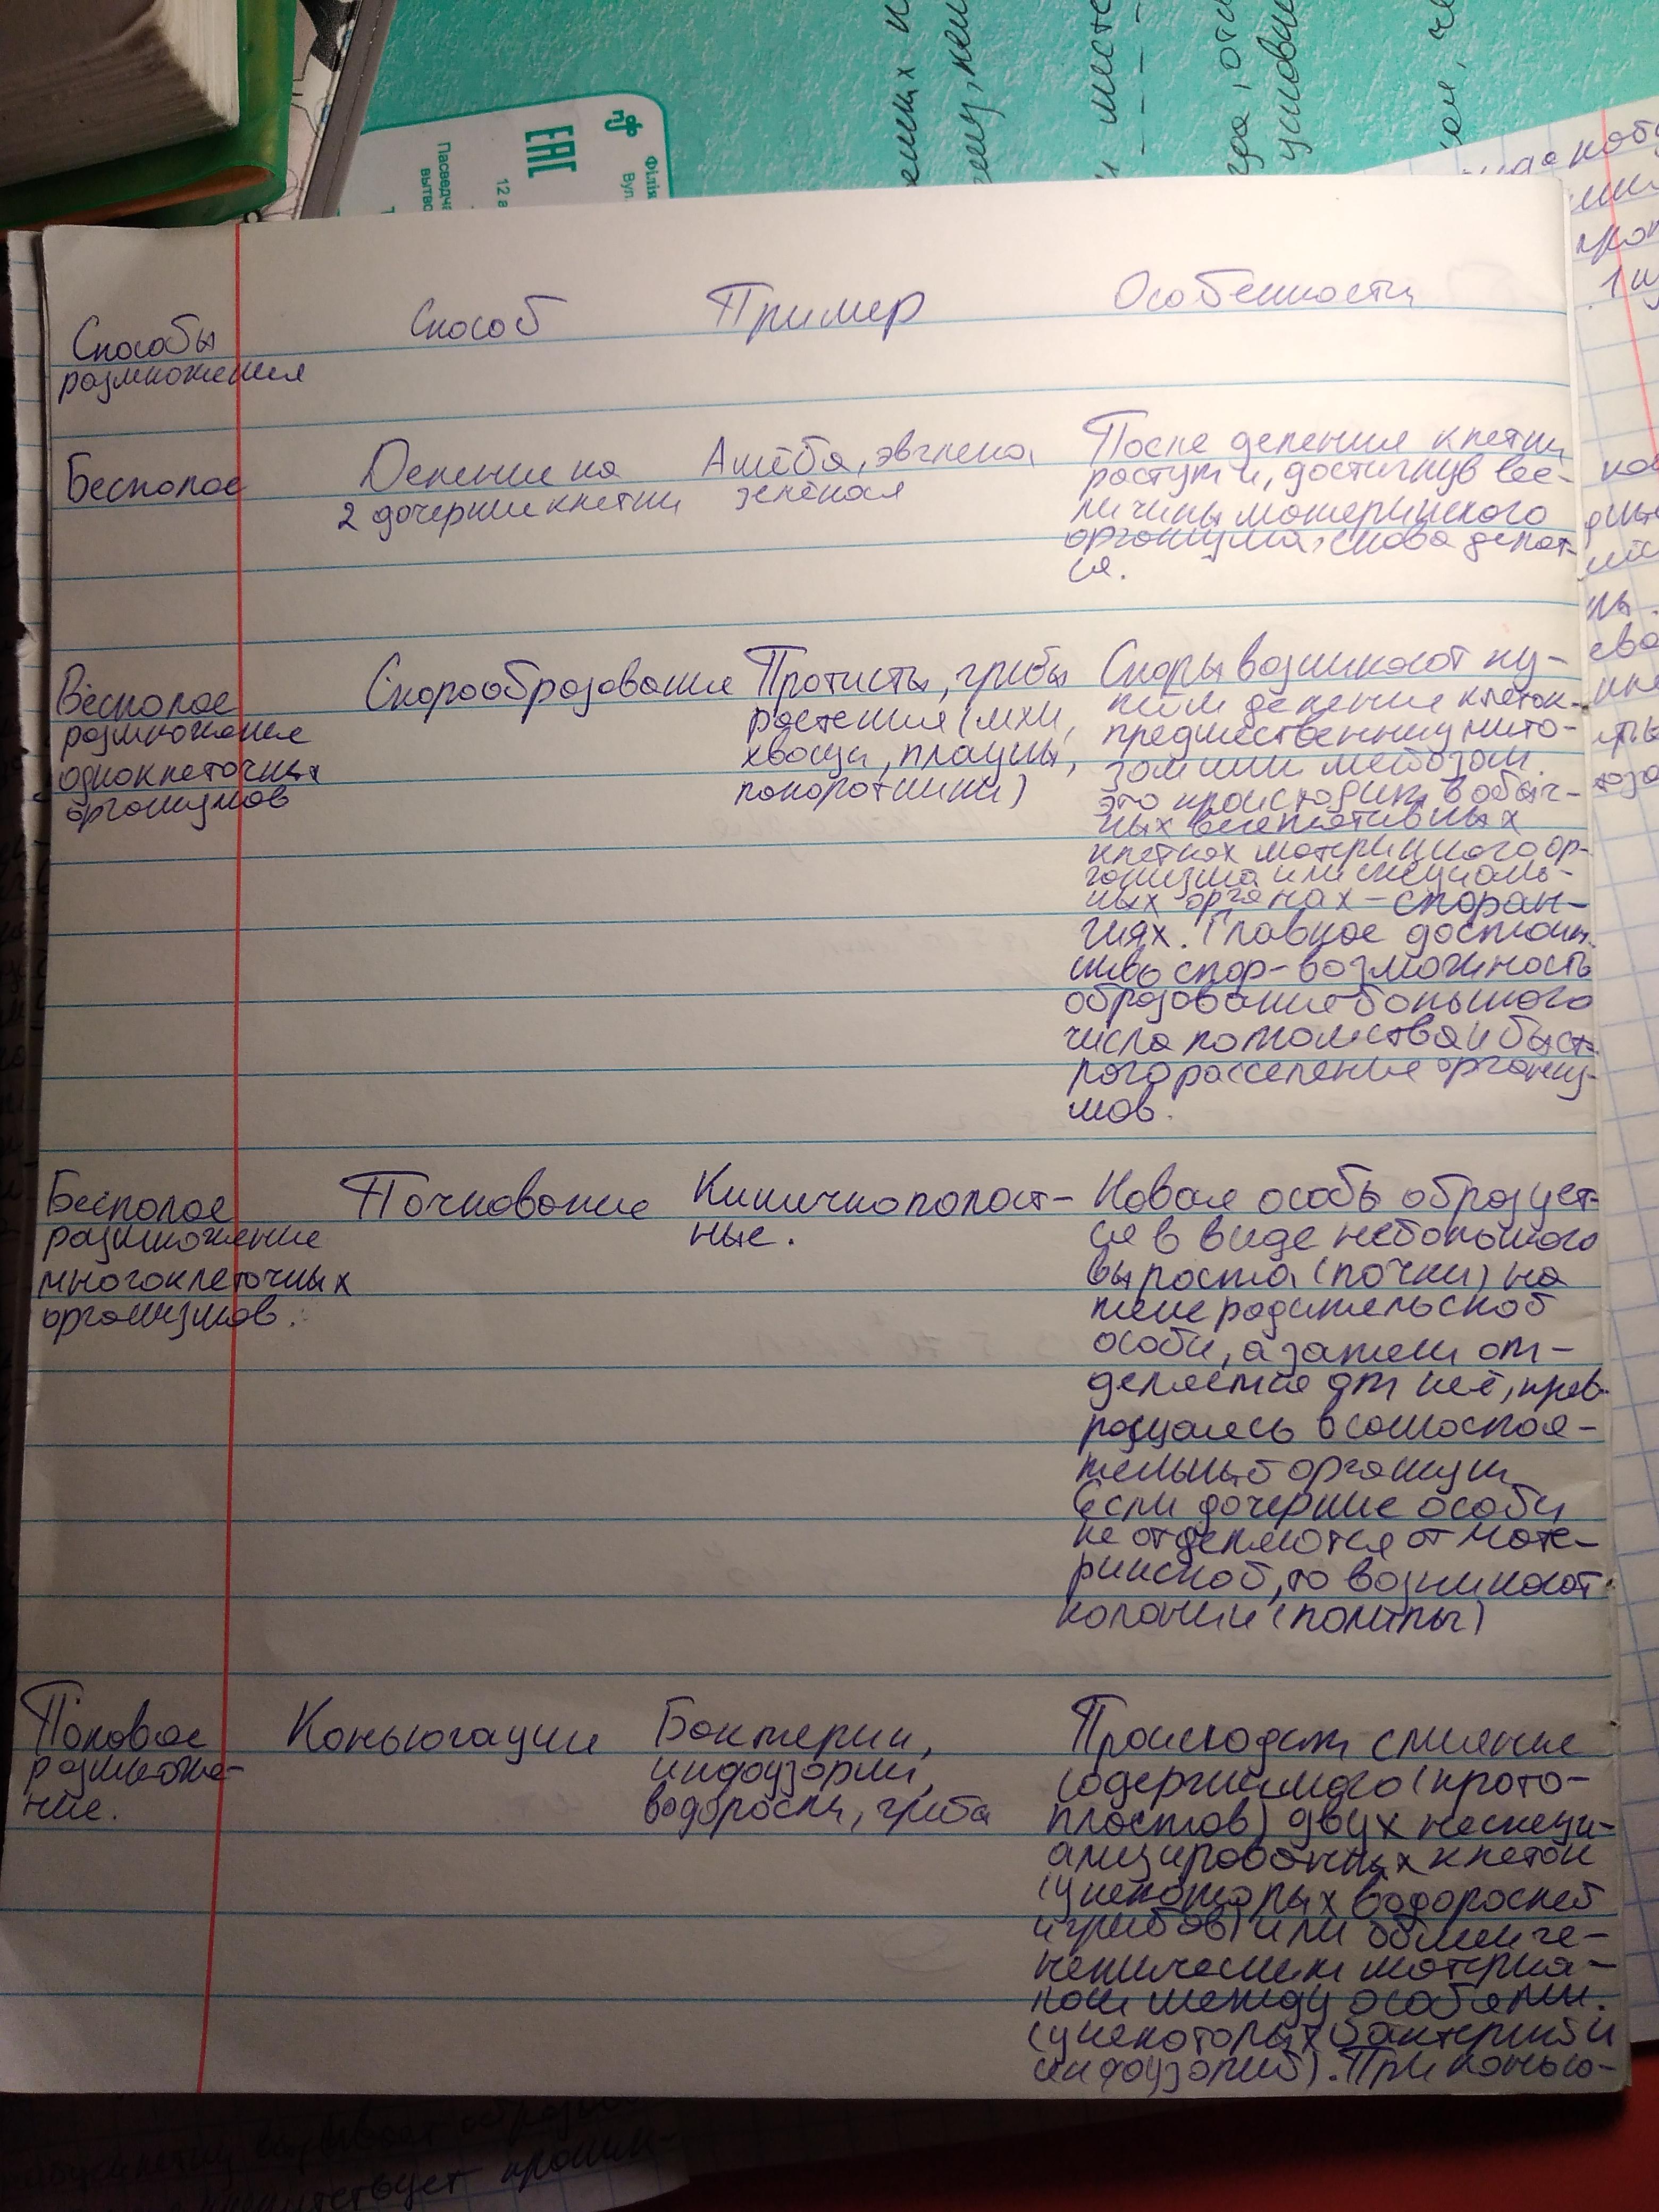 ЕАС
Пасведч
вытво
12 а
Філія
Вул.
Способы
размножения
Способ
Пример
Особенности
Бесполое
Деление на
2 дочерние клетки
Амёба, эвглена
зелёная
После деления клетки
растут и, достигнув ве-
личины материнского
организма, снова делят-
ся.
Бесполое
размножение
одноклеточных
организмов
Спорообразование
Протисты, грибы
растения (мхи,
хвощи, плауны,
папоротники)
Споры возникают пу-
тём деление клеток-
предшественниц мито-
зом или мейозом.
это происходит в обыч-
ных вегетативных
клетках материнского ор-
ганизма или специаль-
ных органах - споран-
гиях. Главное достоин-
ство спор - возможность
образование большого
числа потомства и быст-
рого расселение организ-
мов.
Бесполое
размножение
многоклеточных
организмов.
Почкование
Кишечнополост-
ные.
Новая особь образует-
ся в виде небольшого
выроста (почки) на
теле родительской
особи, а затем от-
деляется от неё, прев-
ращаясь в самостоя-
тельный организм
Если дочерние особи
не отделяются от мате-
ринской, то возникают
колонии (полипы)
Половое
размноже-
ние.
Коньюгации
Бактерии,
инфузории,
водоросли, грибы
Происходит слияние
содержимого (прото-
пластов) двух неспеци-
ализированных клеток
(у некоторых водорослей
и грибов) или обмен ге-
нетическим материа-
лом между особями.
(у некоторых бактерий и
инфузорий). При конью-